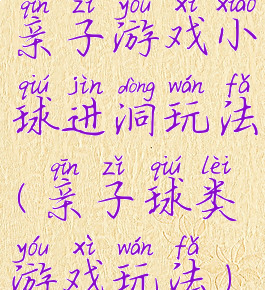 qīn zǐ yóu xì xiǎo
亲子游戏小
qiú jìn dòng wán fǎ
球进洞玩法
qīn zǐ qiú lèi
(亲子球类
yóu xì wán fǎ
游戏玩法)